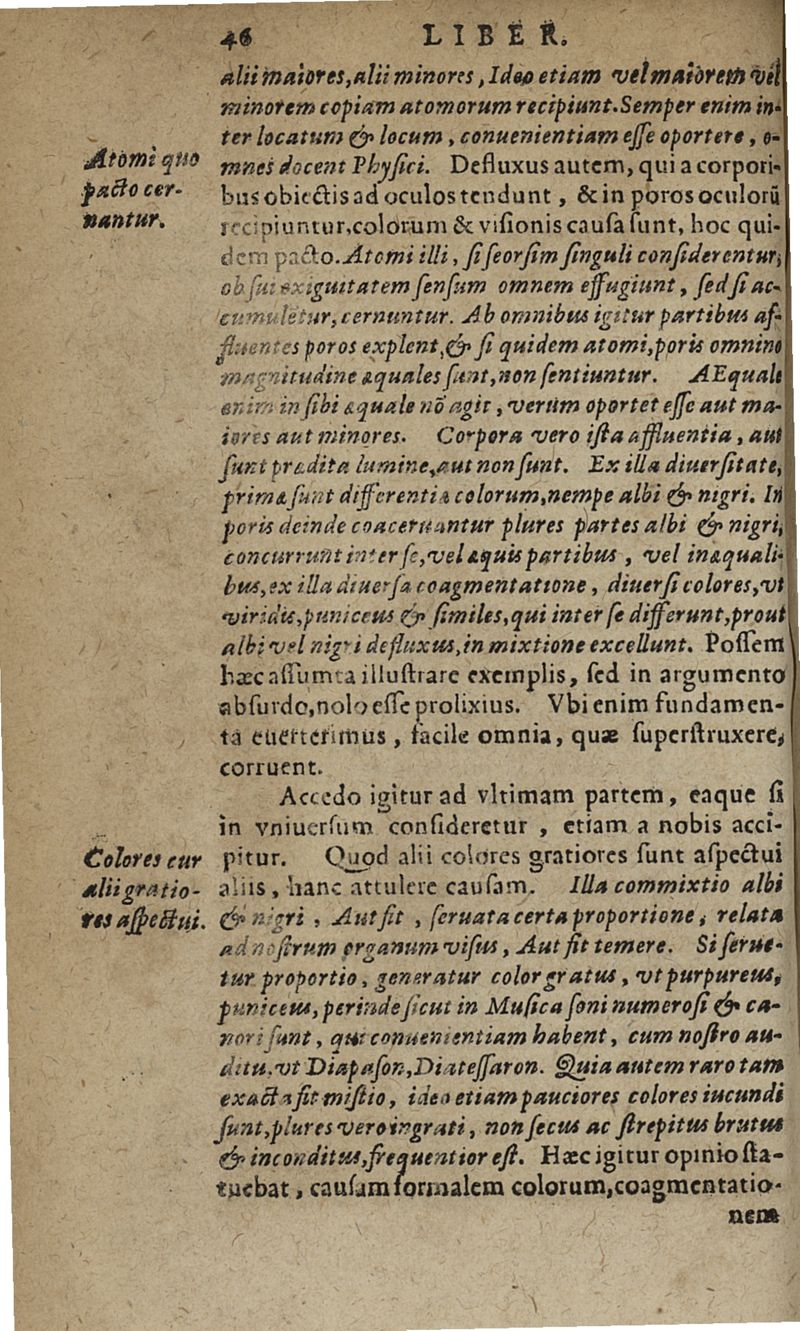 46 LIBER.
alii maiores, alii minores, Ideo etiam vel maiorem vel
minorem copiam atomorum recipiunt. Semper enim in-
ter locatum & locum, conuenientiam eſſe oportere, o-
mnes docent Phyſici. Defluxus autem, qui a corpori-
bus obiectis ad oculos tendunt, & in poros oculorū
recipiuntur, colorum & viſionis cauſa ſunt, hoc qui-
dem pacto. Atomi illi, ſi ſeorſim ſinguli conſiderentur,
ob ſui exiguitatem ſenſum omnem effugiunt, ſed ſi ac-
cumuletur, cernuntur. Ab omnibus igitur partibus af-
fluentes poros explent, & ſi quidem atomi, poris omnino
magnitudine æquales ſunt, non ſentiuntur. AEquale
enim in ſibi æquale nō agit, verùm oportet eſſe aut ma-
iores aut minores. Corpora vero iſta affluentia, aut
ſunt prædita lumine, aut non ſunt. Ex illa diuerſitate,
primæ ſunt differentiæ colorum, nempe albi & nigri. In
poris deinde coaceruantur plures partes albi & nigri,
concurrunt inter ſe, vel æquis partibus, vel inæquali-
bus, ex illa diuerſa coagmentatione, diuerſi colores, vt
viridis, puniceus & ſimiles, qui inter ſe differunt, prout
albi vel nigri defluxus, in mixtione excellunt. Poſſem
hæc aſſumta illuſtrare exemplis, ſed in argumento
abſurdo, nolo eſſe prolixius. Vbi enim fundamen-
ta euerterimus, facile omnia, quæ ſuperſtruxere,
corruent.
Accedo igitur ad vltimam partem, eaque ſi
in vniuerſum conſideretur, etiam a nobis acci-
pitur. Quod alii colores gratiores ſunt aſpectui
aliis, hanc attulere cauſam. Illa commixtio albi
& nigri, Aut fit, ſeruata certa proportione, relata
ad noſtrum organum viſus, Aut fit temere. Si ſerue-
tur proportio, generatur color gratus, vt purpureus,
puniceus, perinde ſicut in Muſica ſoni numeroſi & ca-
nori ſunt, qui conuenientiam habent, cum noſtro au-
ditu. vt Diapaſon, Diateſſaron. Quia autem raro tam
exacta fit miſtio, ideo etiam pauciores colores iucundi
ſunt, plures vero ingrati, non ſecus ac ſtrepitus brutus
& inconditus, frequentior eſt. Hæc igitur opinio ſta-
tuebat, cauſam formalem colorum, coagmentatio-
nem
Atomi quo
pacto cer-
nantur.
Colores cur
alii gratio-
res aſpectui.